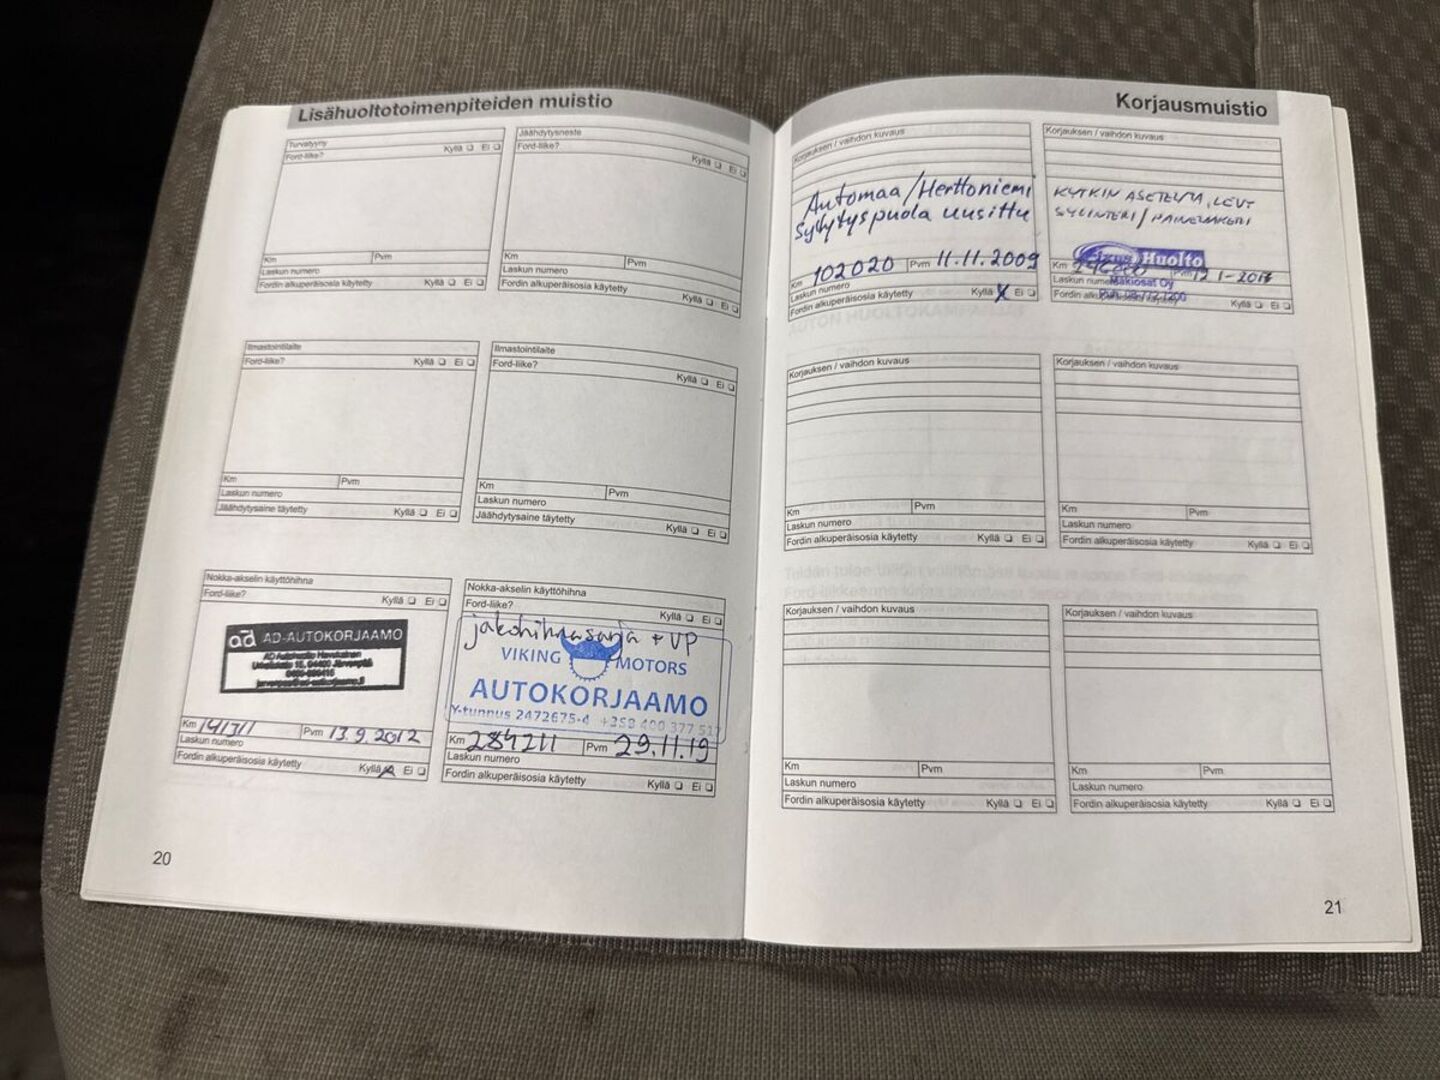 Lisähuoltotoimenpiteiden muistio
Turvatyyny
Ford-liike? Kyllä ❏ Ei ❏
Km Pvm
Laskun numero
Fordin alkuperäisosia käytetty Kyllä ❏ Ei ❏
Jäähdytysneste
Ford-liike? Kyllä ❏ Ei ❏
Km Pvm
Laskun numero
Fordin alkuperäisosia käytetty Kyllä ❏ Ei ❏
Ilmastointilaite
Ford-liike? Kyllä ❏ Ei ❏
Km Pvm
Laskun numero
Jäähdytysaine täytetty Kyllä ❏ Ei ❏
Ilmastointilaite
Ford-liike? Kyllä ❏ Ei ❏
Km Pvm
Laskun numero
Jäähdytysaine täytetty Kyllä ❏ Ei ❏
Nokka-akselin käyttöhihna
Ford-liike? Kyllä ❏ Ei ❏
ad AD-AUTOKORJAAMO
Km 141311 Pvm 13.9.2012
Laskun numero
Fordin alkuperäisosia käytetty Kyllä x Ei ❏
Nokka-akselin käyttöhihna
Ford-liike? Kyllä ❏ Ei ❏
jakohihnasarja + VP
VIKING MOTORS
AUTOKORJAAMO
Y-tunnus 2472675-4 +358 400 377 517
Km 284211 Pvm 29.11.19
Laskun numero
Fordin alkuperäisosia käytetty Kyllä ❏ Ei ❏
20
Korjausmuistio
Korjauksen / vaihdon kuvaus
Automaa/Herttoniemi
Sytytyspuola uusittu
Km 102020 Pvm 11.11.2009
Laskun numero
Fordin alkuperäisosia käytetty Kyllä x Ei ❏
Korjauksen / vaihdon kuvaus
KYTKIN ASETELMA, LEVY
SYLINTERI/
Huolto
Km Pvm
Laskun Oy
Fordin Kyllä ❏ Ei ❏
Korjauksen / vaihdon kuvaus
Km Pvm
Laskun numero
Fordin alkuperäisosia käytetty Kyllä ❏ Ei ❏
Korjauksen / vaihdon kuvaus
Km Pvm
Laskun numero
Fordin alkuperäisosia käytetty Kyllä ❏ Ei ❏
Korjauksen / vaihdon kuvaus
Km Pvm
Laskun numero
Fordin alkuperäisosia käytetty Kyllä ❏ Ei ❏
Korjauksen / vaihdon kuvaus
Km Pvm
Laskun numero
Fordin alkuperäisosia käytetty Kyllä ❏ Ei ❏
21